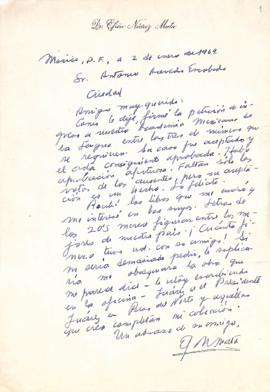 1
Dr. Efrén Núñez Mata
México, D. F., a 2 de enero de 1969.
Sr. Antonio Acevedo Escobedo
Ciudad
Amigo muy querido:
Como le dije, firmé la petición de in-
greso a nuestra Academia Mexicana de
la Lengua entre los tres de número que
se requieren. La cosa fue aceptada y
el orden consiguiente aprobado. Hubo
aprobación afectuosa. Faltan sólo los
votos de los ausentes, pero su acepta-
ción es un hecho. Lo felicito.
Recibí los libros que me envió y
me interesé en los suyos. Letras de
los 20's merece figurar entre los me-
jores de nuestro país. ¡Cuánto fi-
nera tuvo ud. con su amigo! Si
no sería demasiado pedir, le suplica-
ría me obsequiara la obra que
me parece dice le estoy escribiendo
en la oficina - Juárez o el Presidente
Juárez en Paso del Norte y aquellas
que crea completan mi colección.
Un abrazo de su amigo,
E N Mata